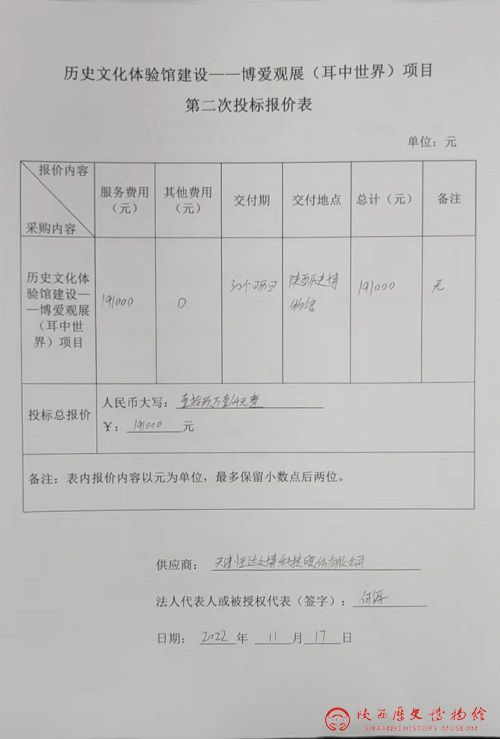 历史文化体验馆建设——博爱观展（耳中世界）项目
第二次投标报价表
单位：元
报价内容
采购内容
服务费用
（元）
其他费用
（元）
交付期
交付地点
总计（元）
备注
历史文化体
验馆建设—
—博爱观展
（耳中世
界）项目
191000
0
30个日历日
陕西历史博
物馆
191000
无
投标总报价
人民币大写：壹拾玖万壹仟元整
¥：191000元
备注：表内报价内容以元为单位，最多保留小数点后两位。
供应商：天津恒达文博科技股份有限公司
法人代表人或被授权代表（签字）：
日期：2022年11月17日
陕西历史博物馆
SHAANXI HISTORY MUSEUM